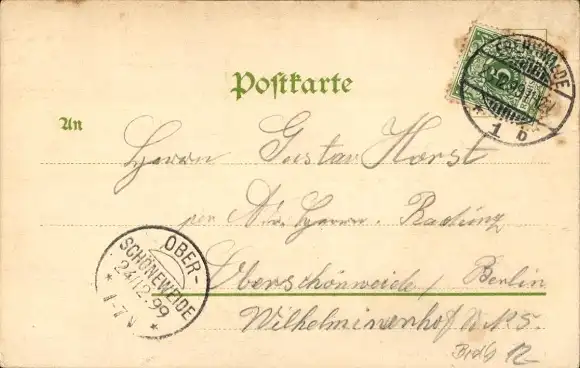 Postkarte
EBERSWALDE
1 b
5
An
Herrn Gustav Horst
per Adr. Herrn. Radünz
OBER-
SCHÖNEWEIDE
24/12.99
1-7V
Oberschönweide / Berlin
Wilhelminenhof
Brdbg 12